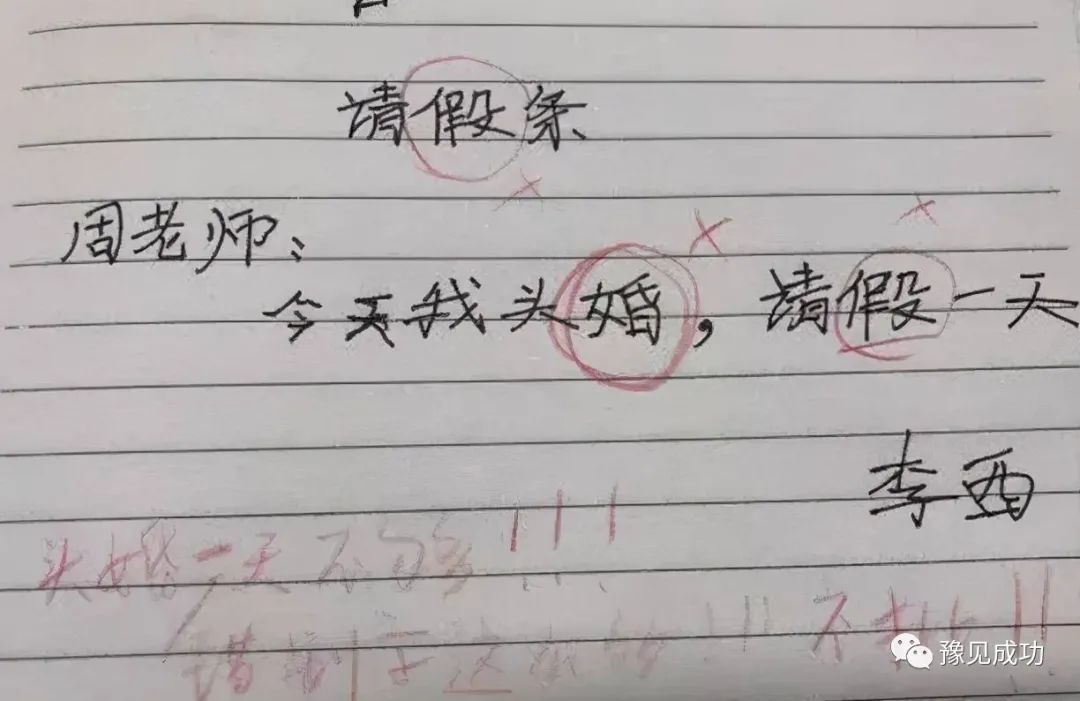 请假条
周老师:
今天我头婚，请假一天
李西
头婚一天不够!!!
错别字这么多!!!不批!!
豫见成功